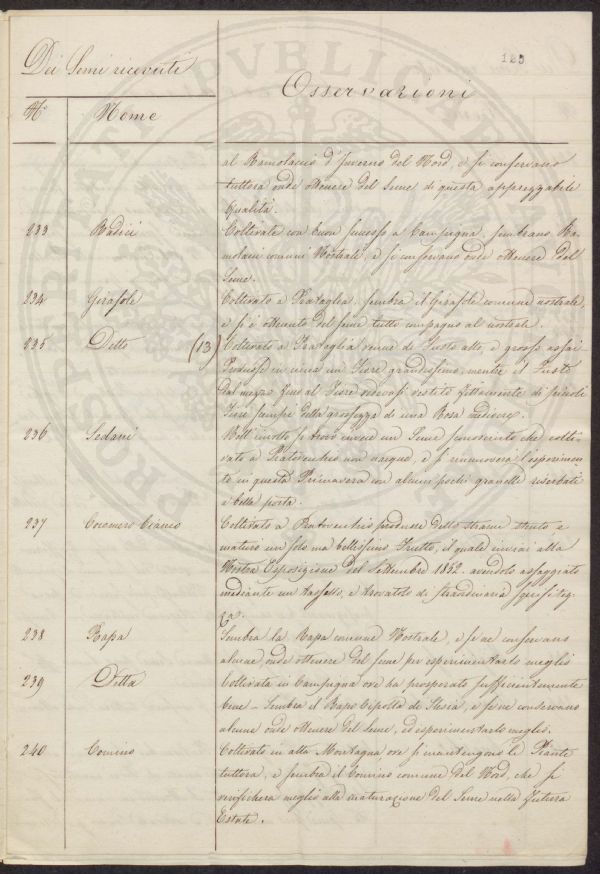 125
Dei Semi ricevuti
Osservazioni
N.o
Nome
al Ramolaccio d'Inverno del Nord, e si conservano
tuttora onde ottenere del Seme di questa apprezzabile
qualità.
233 Radici Coltivate con buon successo a Campigna, sembrano Ra-
molacci comuni Nostrale, e si conservano onde ottenere del
Seme.
234 Girasole Coltivato a Prataglia. Sembra il Girasole comune nostrale,
e si è ottenuto del seme tutto compagno al nostrale.
235 Detto (13) Coltivato a Prataglia venne di Fusto alto, e grosso assai-
Produsse in vetta un Fiore grandissimo, mentre il Fusto
dal mezzo fino al Fiore vedevasi vestito fittamente di piccoli
Fiori sempre della grossezza di una Rosa mediocre.
236 Sedani Nell'involto si trovò invece un Seme sconosciuto che colti-
vato a Pratovecchio non nacque, e si rinnuoverà l'esperimen-
to in questa Primavera con alcuni pochi granelli riserbati
a bella posta.
237 Cocomero bianco Coltivato a Pratovecchio produsse dello strame stento e
maturò un solo ma bellissimo Frutto, il quale inviai alla
Mostra Esposizione del Settembre 1852. avendolo assaggiato
mediante un tassello, e trovatolo di straordinaria squisitez-
za.
238 Rapa Sembra la Rapa comune Nostrale, e se ne conservano
alcune onde ottenere del seme per esperimentarlo meglio
239 Detta Coltivata in Campigna ove ha prosperato sufficientemente
bene - Sembra il Rapo Cipolla di Slesia, e se ne conservano
alcune onde ottenere del Seme, ed esperimentarlo meglio.
240 Comino Coltivato in alta Montagna ove si mantengono le Piante
tuttora, e sembra il Comino comune del Nord, che si
verificherà meglio alla maturazione del Seme nella futura
Estate.